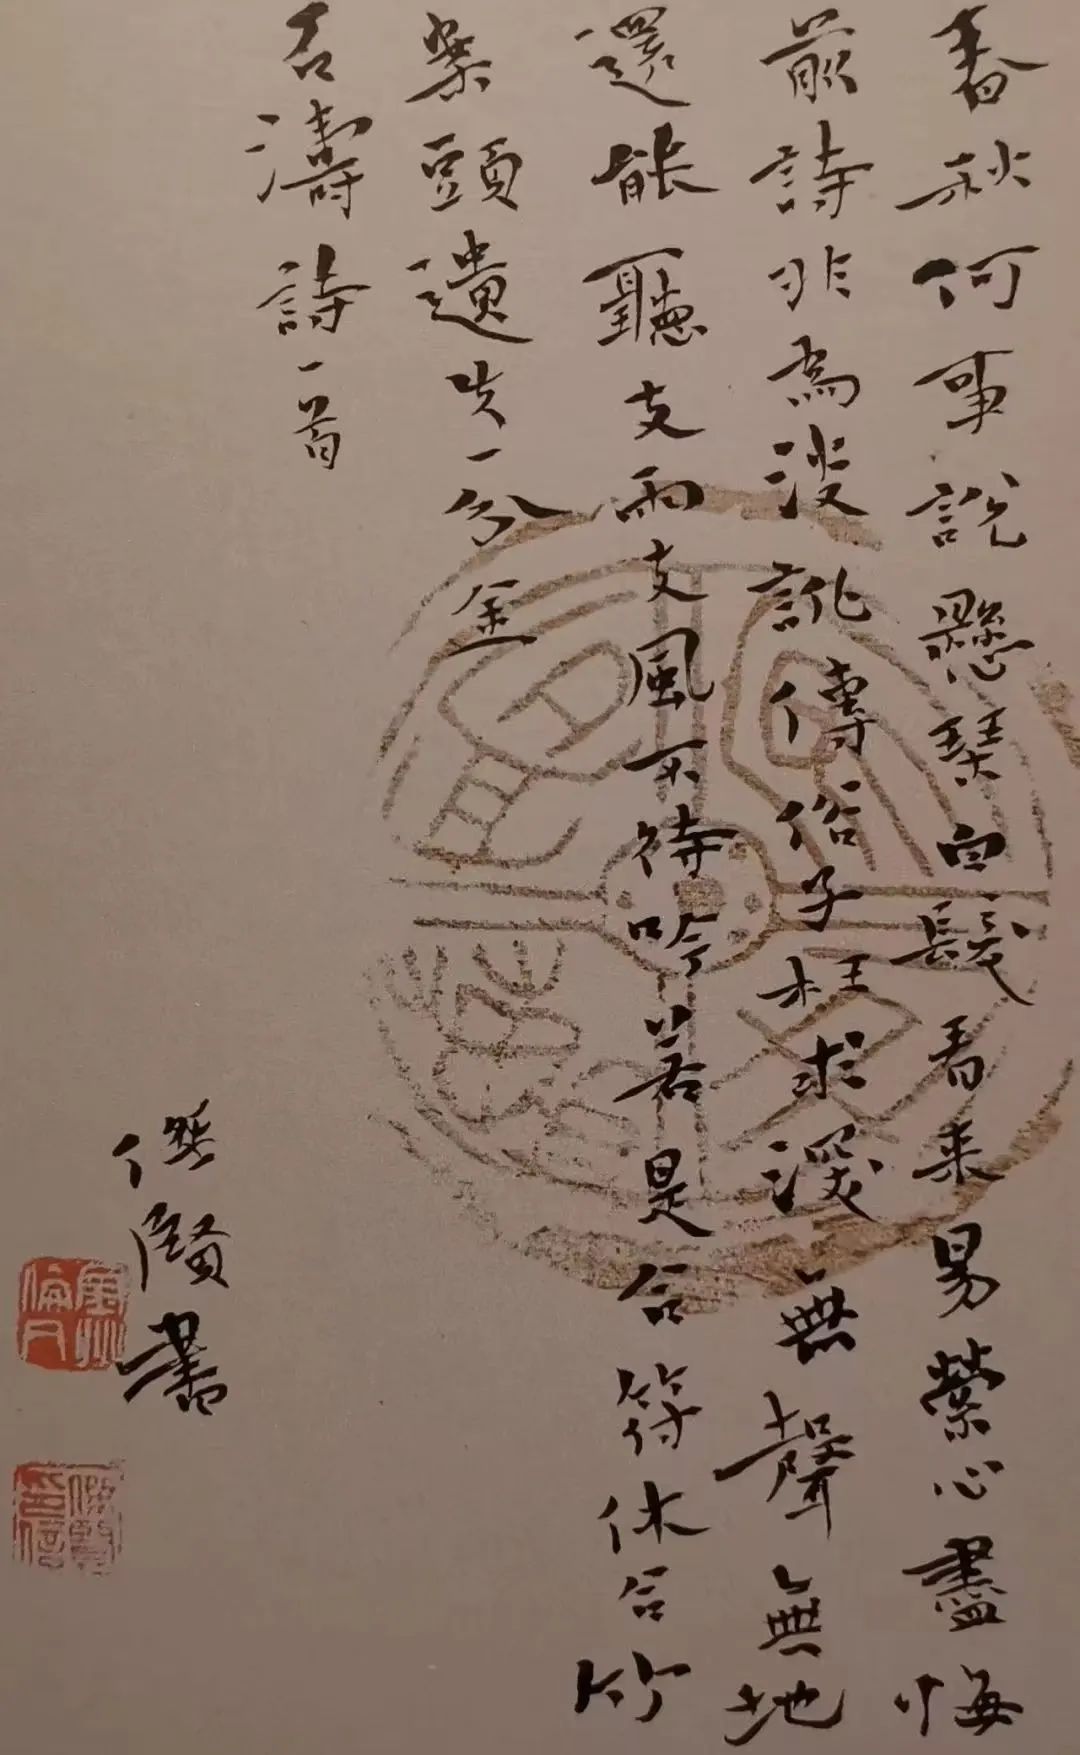 春秋何事說懸琴白髮看来易縈心盡悔
前詩非為澹訛傳俗子枉求深無聲無地
還能聽支雨支風不待吟若是合符休合竹
案頭遺失一分金
石濤詩一首
傑賢書